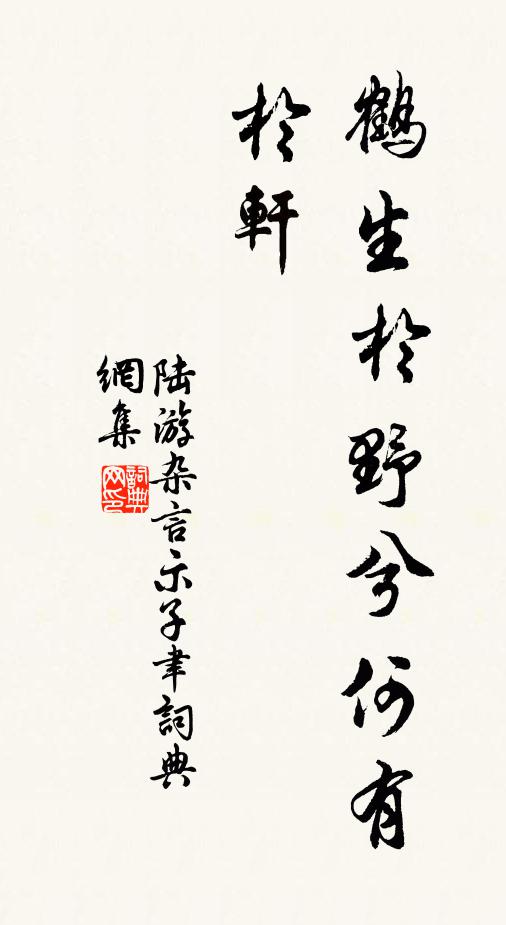 鶴生於野兮何有
於軒
陆游杂言示子聿詞典
網集
詞典网印